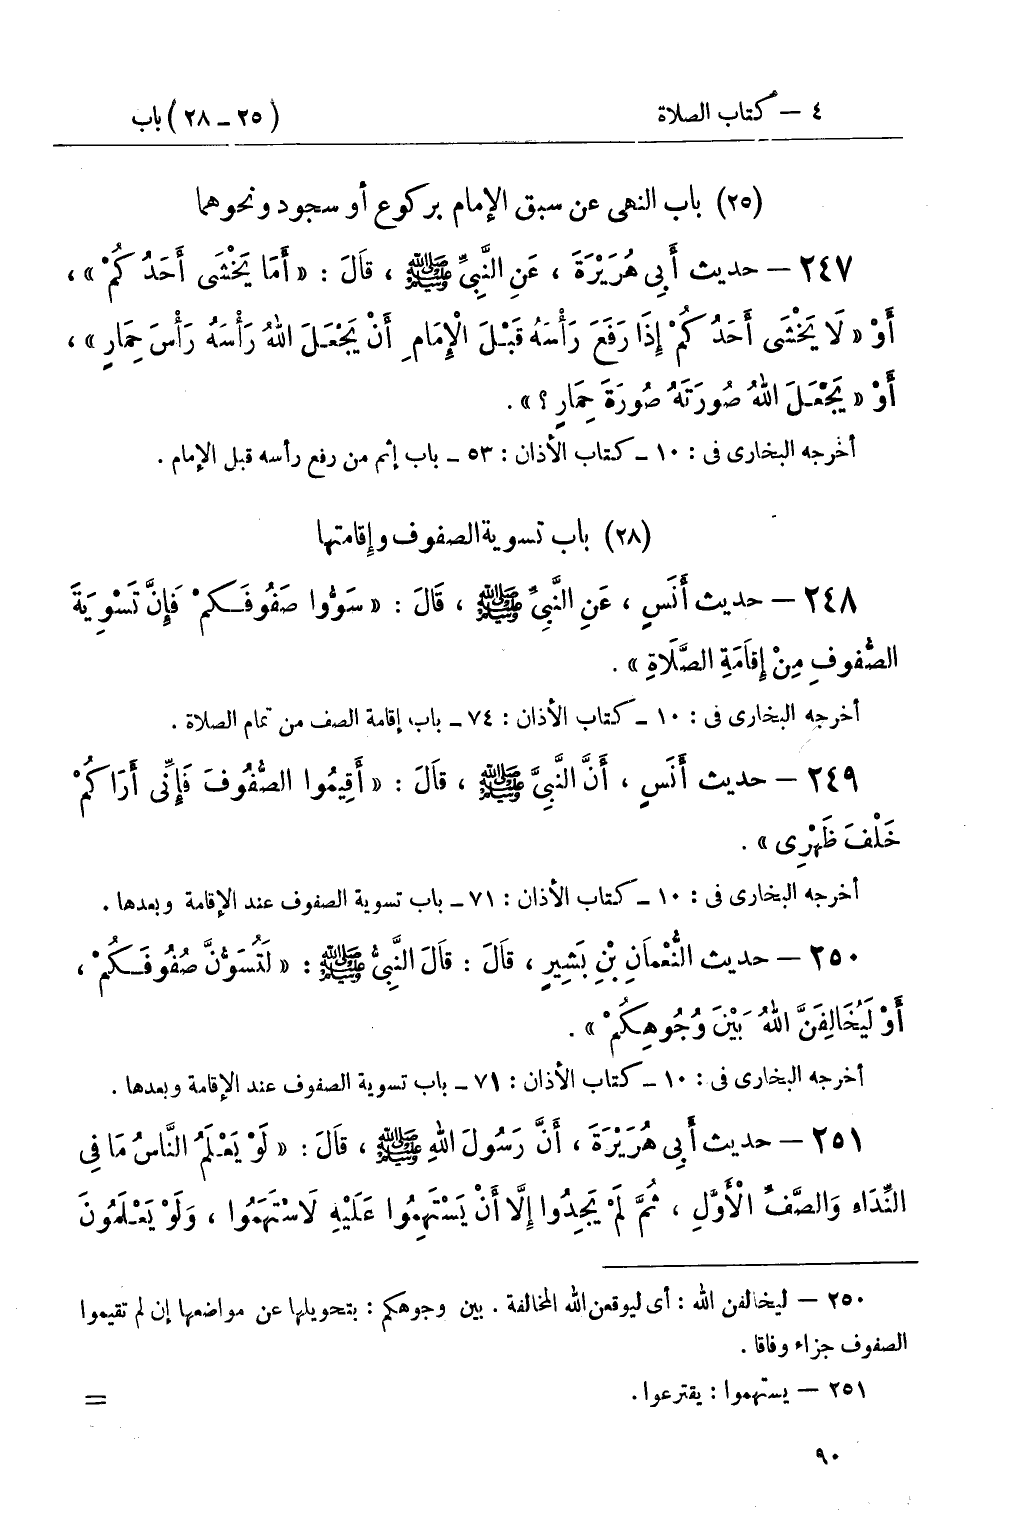 ٤ — كتاب الصلاة
(٢٥ – ٢٨) باب
(٢٥) باب النهى عن سبق الإمام بركوع أو سجود ونحوهما
٢٤٧ — حديث أَبِى هُرَيْرَةَ ، عَنِ النَّبِىِّ ﷺ ، قَالَ : « أَمَا يَخْشَى أَحَدُكُمْ » ،
أَوْ « لَا يَخْشَى أَحَدُكُمْ إِذَا رَفَعَ رَأْسَهُ قَبْلَ الْإِمَامِ أَنْ يَجْعَلَ اللهُ رَأْسَهُ رَأْسَ حِمَارٍ » ،
أَوْ « يَجْعَلَ اللهُ صُورَتَهُ صُورَةَ حِمَارٍ ؟ » .
أخرجه البخارى فى : ١٠ – كتاب الأذان : ٥٣ – باب إثم من رفع رأسه قبل الإمام .
(٢٨) باب تسوية الصفوف وإقامتها
٢٤٨ — حديث أَنَسٍ ، عَنِ النَّبِىِّ ﷺ ، قَالَ : « سَوُّوا صُفُوفَكُمْ فَإِنَّ تَسْوِيَةَ
الصُّفُوفِ مِنْ إِقَامَةِ الصَّلَاةِ » .
أخرجه البخارى فى : ١٠ – كتاب الأذان : ٧٤ – باب إقامة الصف من تمام الصلاة .
٢٤٩ — حديث أَنَسٍ ، أَنَّ النَّبِىَّ ﷺ ، قَالَ : « أَقِيمُوا الصُّفُوفَ فَإِنِّى أَرَاكُمْ
خَلْفَ ظَهْرِى » .
أخرجه البخارى فى : ١٠ – كتاب الأذان : ٧١ – باب تسوية الصفوف عند الإقامة وبعدها .
٢٥٠ — حديث النُّعْمَانِ بْنِ بَشِيرٍ ، قَالَ : قَالَ النَّبِىُّ ﷺ : « لَتُسَوُّنَّ صُفُوفَكُمْ ،
أَوْ لَيُخَالِفَنَّ اللهُ بَيْنَ وُجُوهِكُمْ » .
أخرجه البخارى فى : ١٠ – كتاب الأذان : ٧١ – باب تسوية الصفوف عند الإقامة وبعدها .
٢٥١ — حديث أَبِى هُرَيْرَةَ ، أَنَّ رَسُولَ اللهِ ﷺ ، قَالَ : « لَوْ يَعْلَمُ النَّاسُ مَا فِى
النِّدَاءِ وَالصَّفِّ الْأَوَّلِ ، ثُمَّ لَمْ يَجِدُوا إِلَّا أَنْ يَسْتَهِمُوا عَلَيْهِ لَاسْتَهَمُوا ، وَلَوْ يَعْلَمُونَ
٢٥٠ — ليخالفن الله : أى ليوقعن الله المخالفة . بين وجوهكم : بتحويلها عن مواضعها إن لم تقيموا
الصفوف جزاء وفاقا .
٢٥١ — يستهموا : يقترعوا .
=
٩٠